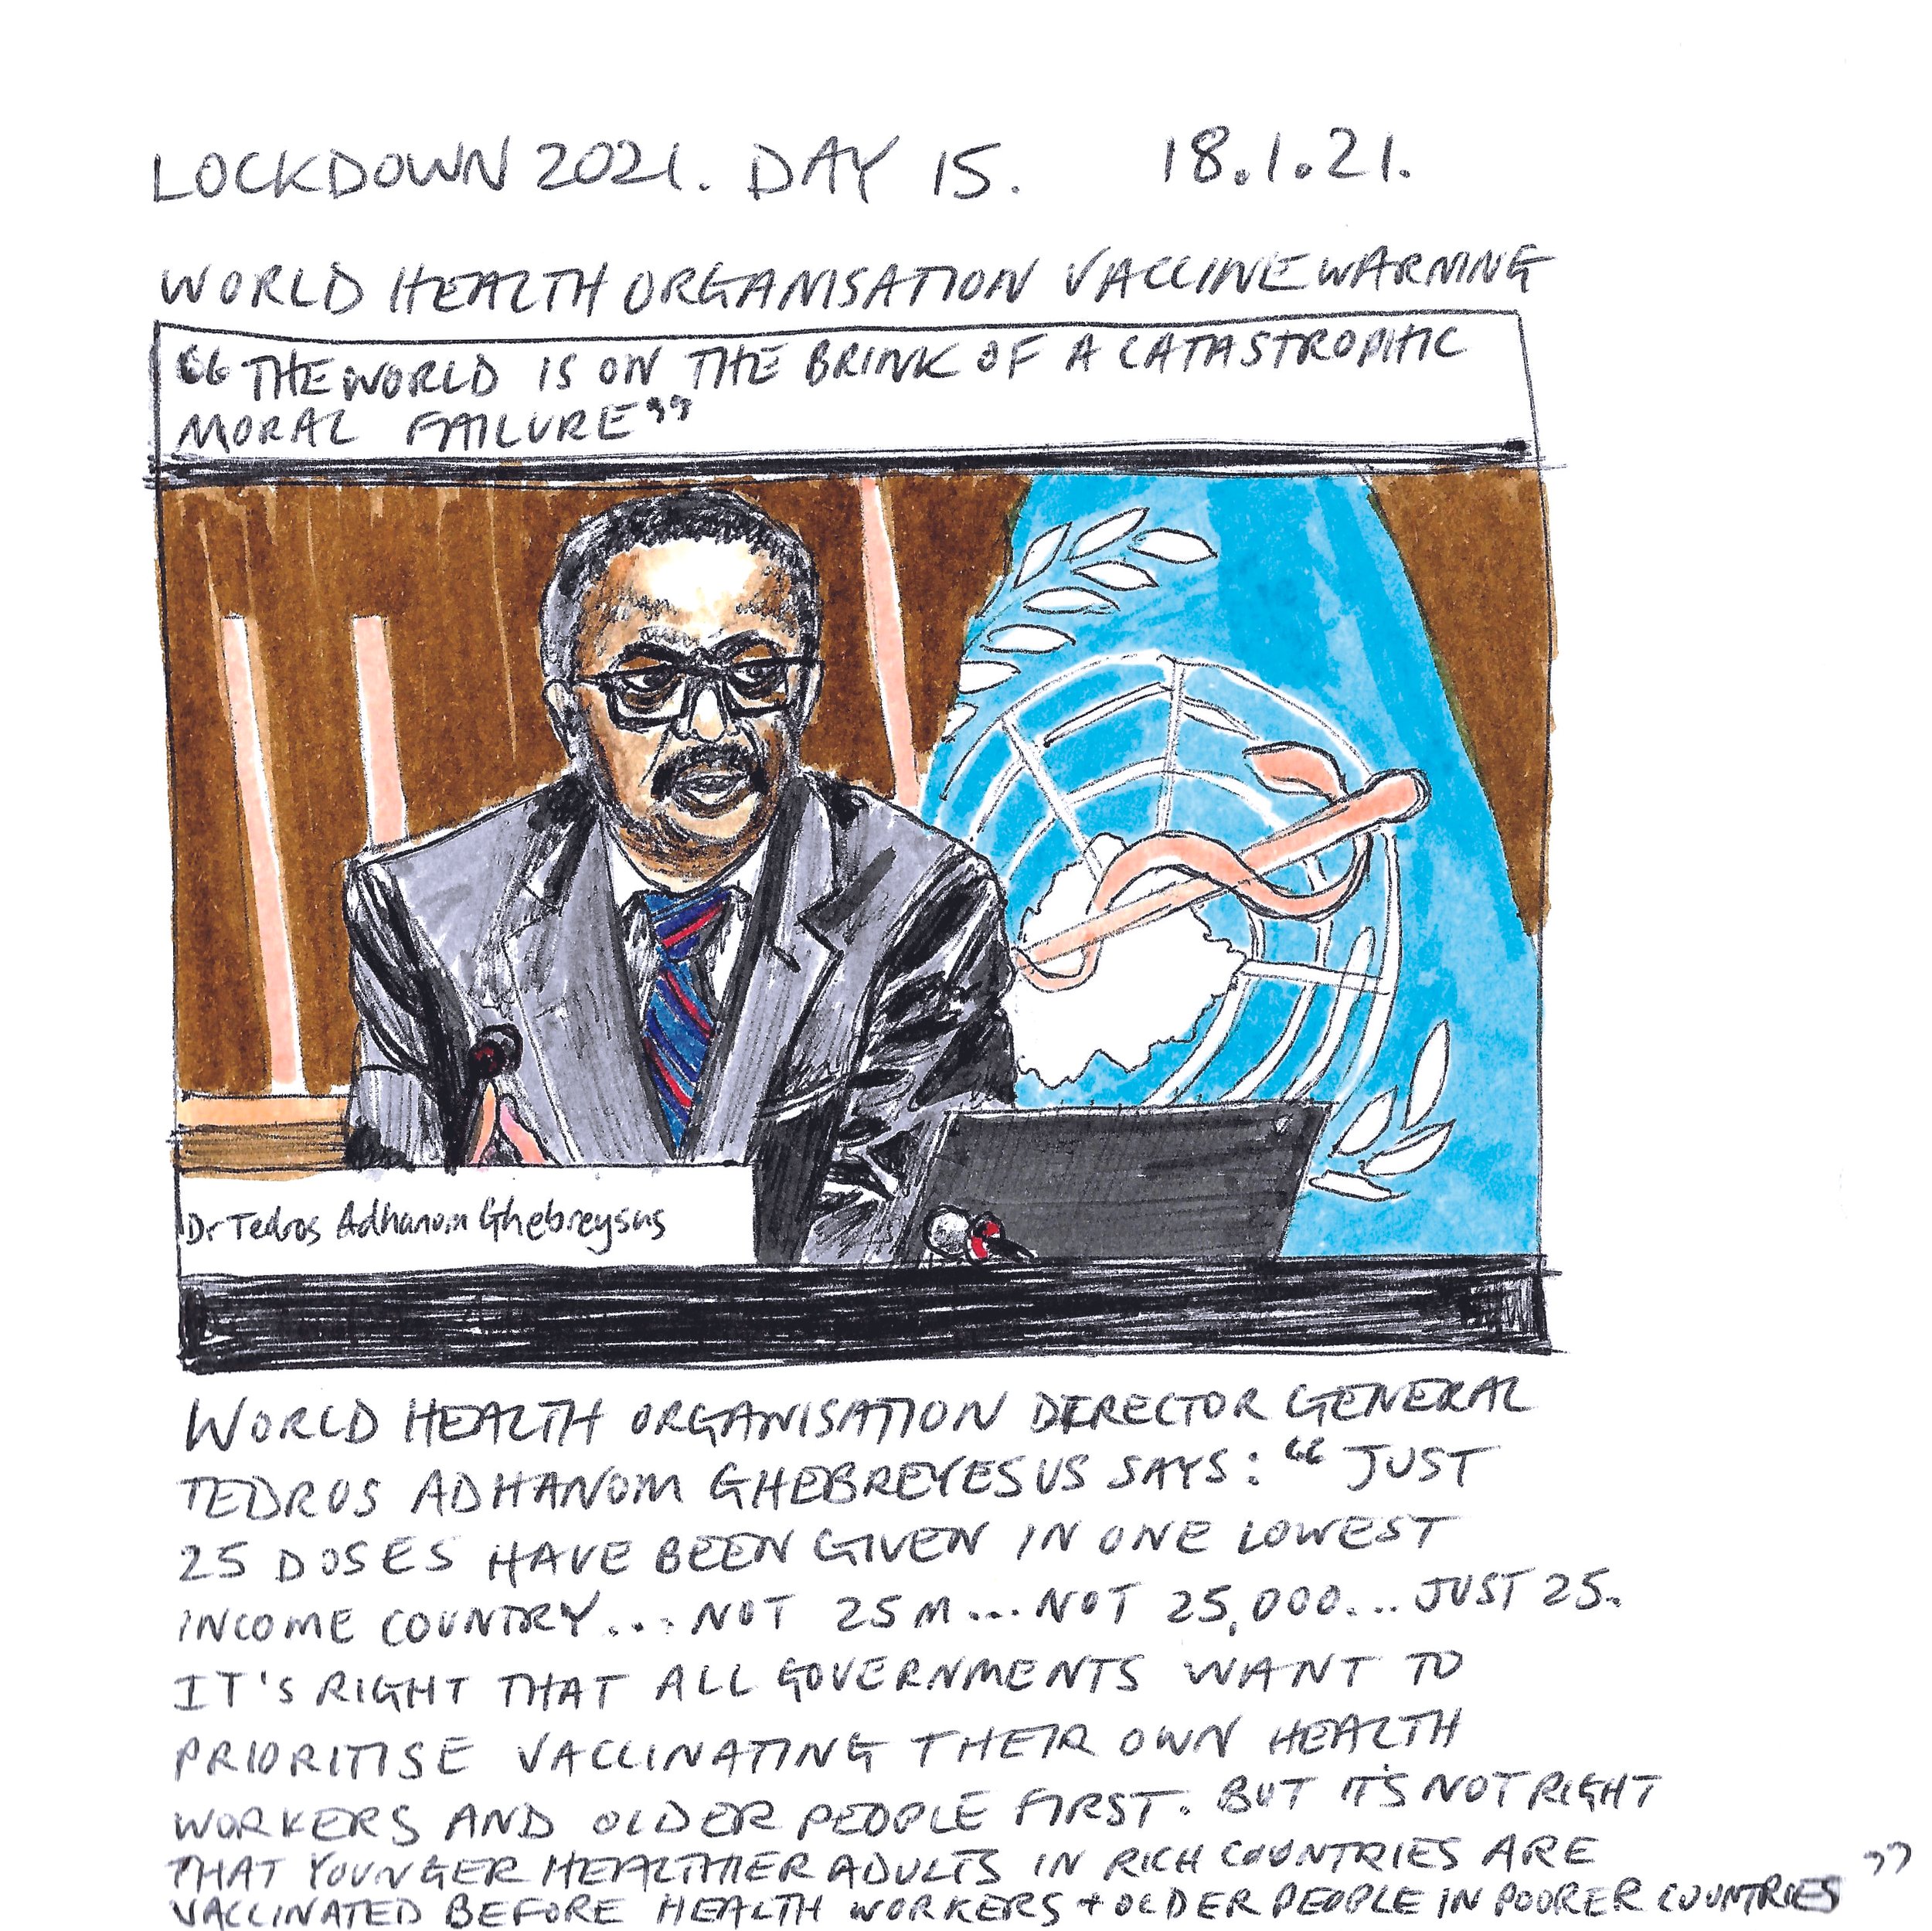 LOCKDOWN 2021. DAY 15. 18.1.21.
WORLD HEALTH ORGANISATION VACCINE WARNING
“THE WORLD IS ON THE BRINK OF A CATASTROPHIC
MORAL FAILURE”
Dr Tedros Adhanom Ghebreysus
WORLD HEALTH ORGANISATION DIRECTOR GENERAL
TEDROS ADHANOM GHEBREYESUS SAYS: “JUST
25 DOSES HAVE BEEN GIVEN IN ONE LOWEST
INCOME COUNTRY... NOT 25M... NOT 25,000... JUST 25.
IT'S RIGHT THAT ALL GOVERNMENTS WANT TO
PRIORITISE VACCINATING THEIR OWN HEALTH
WORKERS AND OLDER PEOPLE FIRST. BUT IT'S NOT RIGHT
THAT YOUNGER HEALTHIER ADULTS IN RICH COUNTRIES ARE
VACCINATED BEFORE HEALTH WORKERS + OLDER PEOPLE IN POORER COUNTRIES”